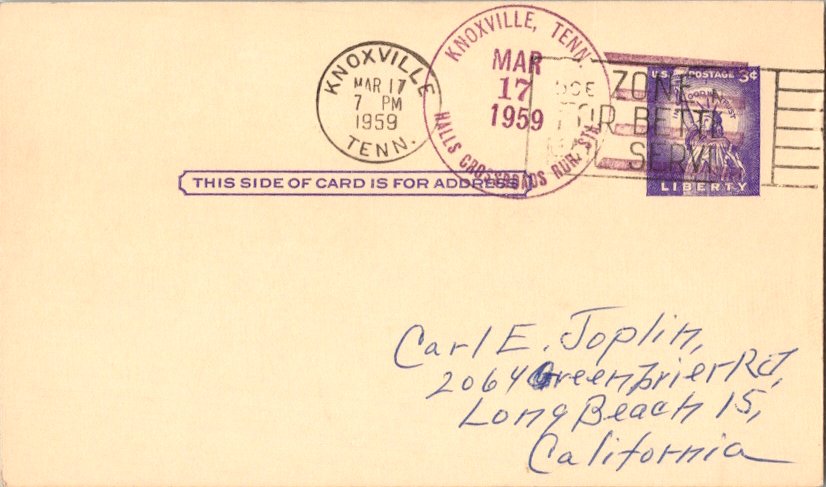 KNOXVILLE
MAR 17
7 PM
1959
TENN.
KNOXVILLE, TENN.
MAR
17
1959
HALLS CROSSROADS RUR. STA.
USE ZONE
FOR BETTE
MAIL SERVI
U.S. POSTAGE 3¢
IN GOD WE TRUST
LIBERTY
THIS SIDE OF CARD IS FOR ADDRESS
Carl E. Joplin,
2064 Greenbrier Rd,
Long Beach 15,
California